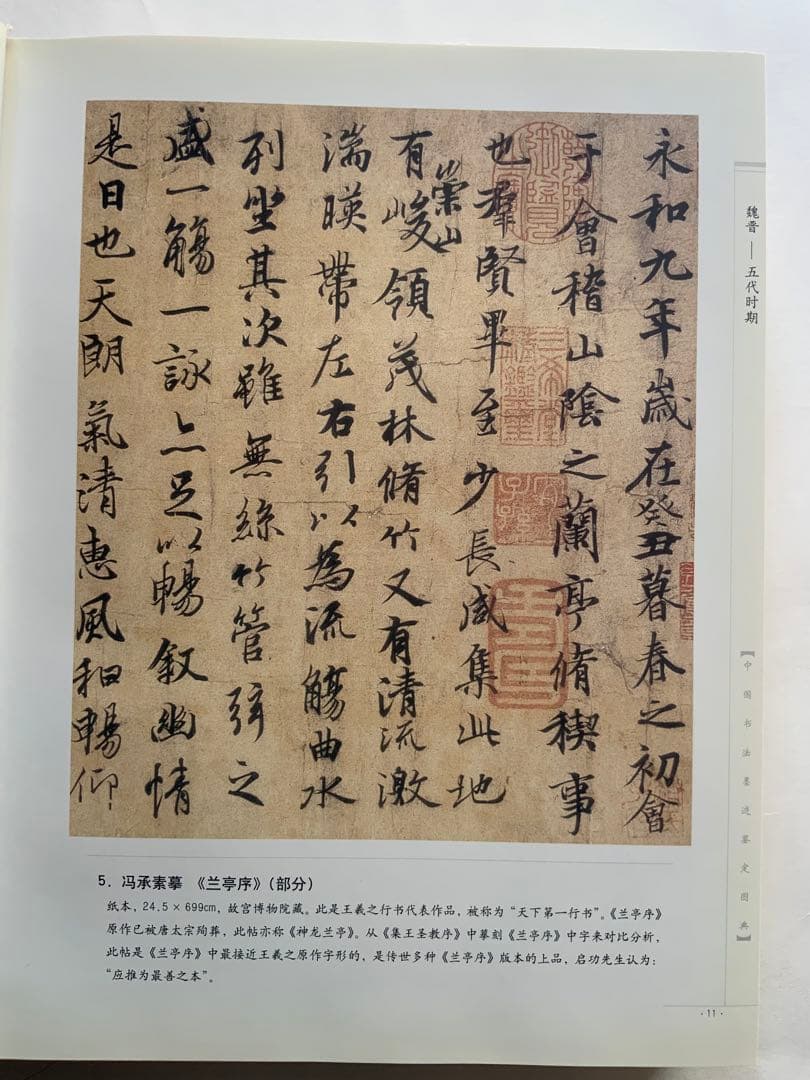 永和九年歲在癸丑暮春之初會
于會稽山陰之蘭亭脩稧事
也羣賢畢至少長咸集此地
有崇山峻領茂林脩竹又有清流激
湍暎帶左右引以為流觴曲水
列坐其次雖無絲竹管弦之
盛一觴一詠亦足以暢叙幽情
是日也天朗氣清惠風和暢仰
魏晋——五代时期
【中国书法墨迹鉴定图典】
5．冯承素摹 《兰亭序》(部分)
纸本，24.5×699cm，故宫博物院藏。此是王羲之行书代表作品，被称为“天下第一行书”。《兰亭序》
原作已被唐太宗殉葬，此帖亦称《神龙兰亭》。从《集王圣教序》中摹刻《兰亭序》中字来对比分析，
此帖是《兰亭序》中最接近王羲之原作字形的，是传世多种《兰亭序》版本的上品，启功先生认为：
“应推为最善之本”。
·11·